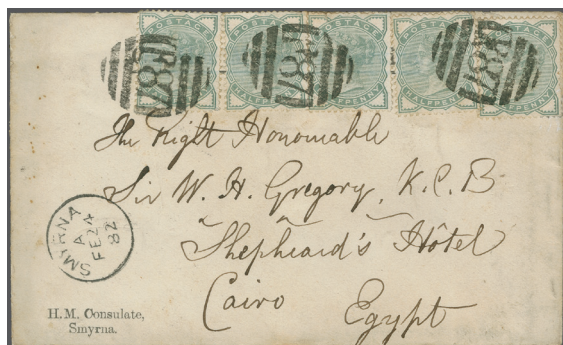 POSTAGE POSTAGE POSTAGE POSTAGE POSTAGE
HALFPENNY HALFPENNY HALFPENNY HALFPENNY HALFPENNY
The Right Honourable
Sir W. H. Gregory, K.C.B
Shepheard's Hôtel
Cairo Egypt
SMYRNA
A
FE 24
82
H. M. Consulate,
Smyrna.